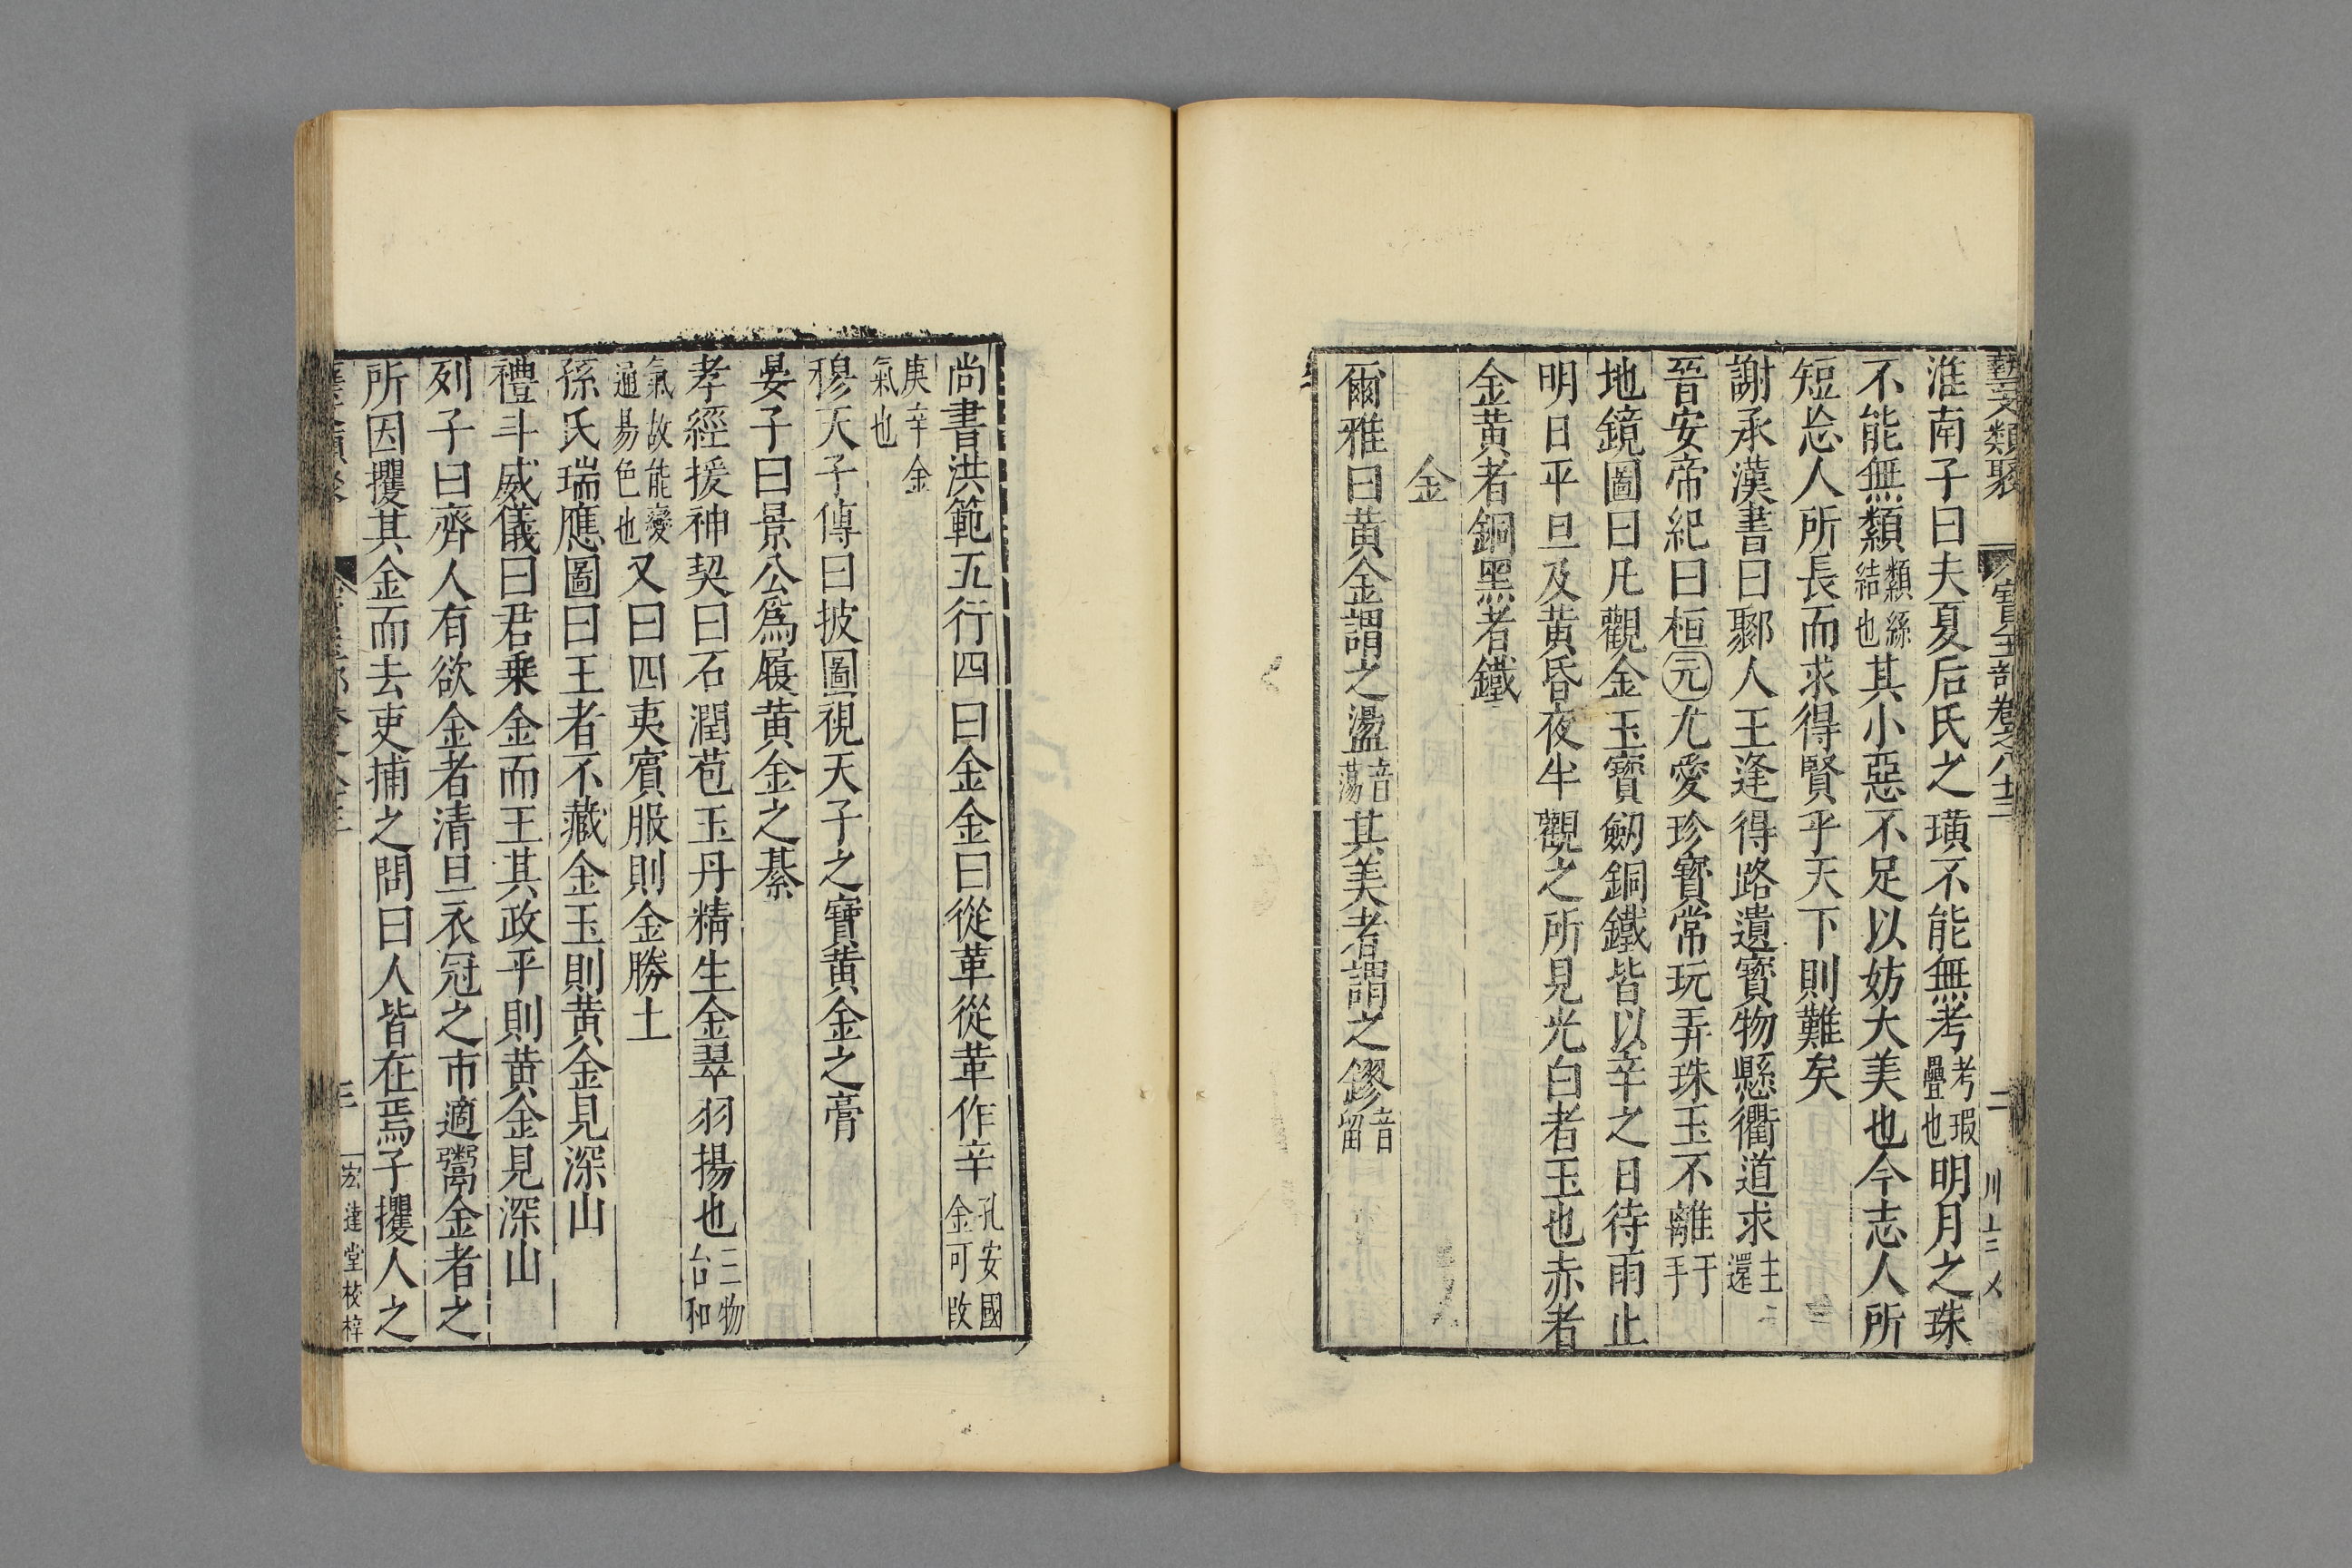 藝文類聚 寶玉部卷之八十三 二
淮南子曰夫夏后氏之璜不能無考考瑕疊也明月之珠
不能無纇纇絲結也其小惡不足以妨大美也今志人所
短忘人所長而求得賢乎天下則難矣
謝承漢書曰鄹人王逢得路遺寶物懸衢道求主還
晉安帝紀曰桓元尤愛珍寶常玩弄珠玉不離于手
地鏡圖曰凡觀金玉寶劒銅鐵皆以辛之日待雨止
明日平旦及黃昏夜半觀之所見光白者玉也赤者
金黃者銅黑者鐵
金
爾雅曰黃金謂之璗音蕩其美者謂之鏐音留
尚書洪範五行四曰金金曰從革從革作辛孔安國金可改
庚辛金氣也
穆天子傳曰披圖視天子之寶黃金之膏
晏子曰景公爲履黃金之綦
孝經援神契曰石潤苞玉丹精生金翠羽揚也三物台和
氣故能變通易色也又曰四夷賓服則金勝土
孫氏瑞應圖曰王者不藏金玉則黃金見深山
禮斗威儀曰君乗金而王其政平則黃金見深山
列子曰齊人有欲金者清旦衣冠之市適鬻金者之
所因攫其金而去吏捕之問曰人皆在焉子攫人之
三 宏達堂校梓